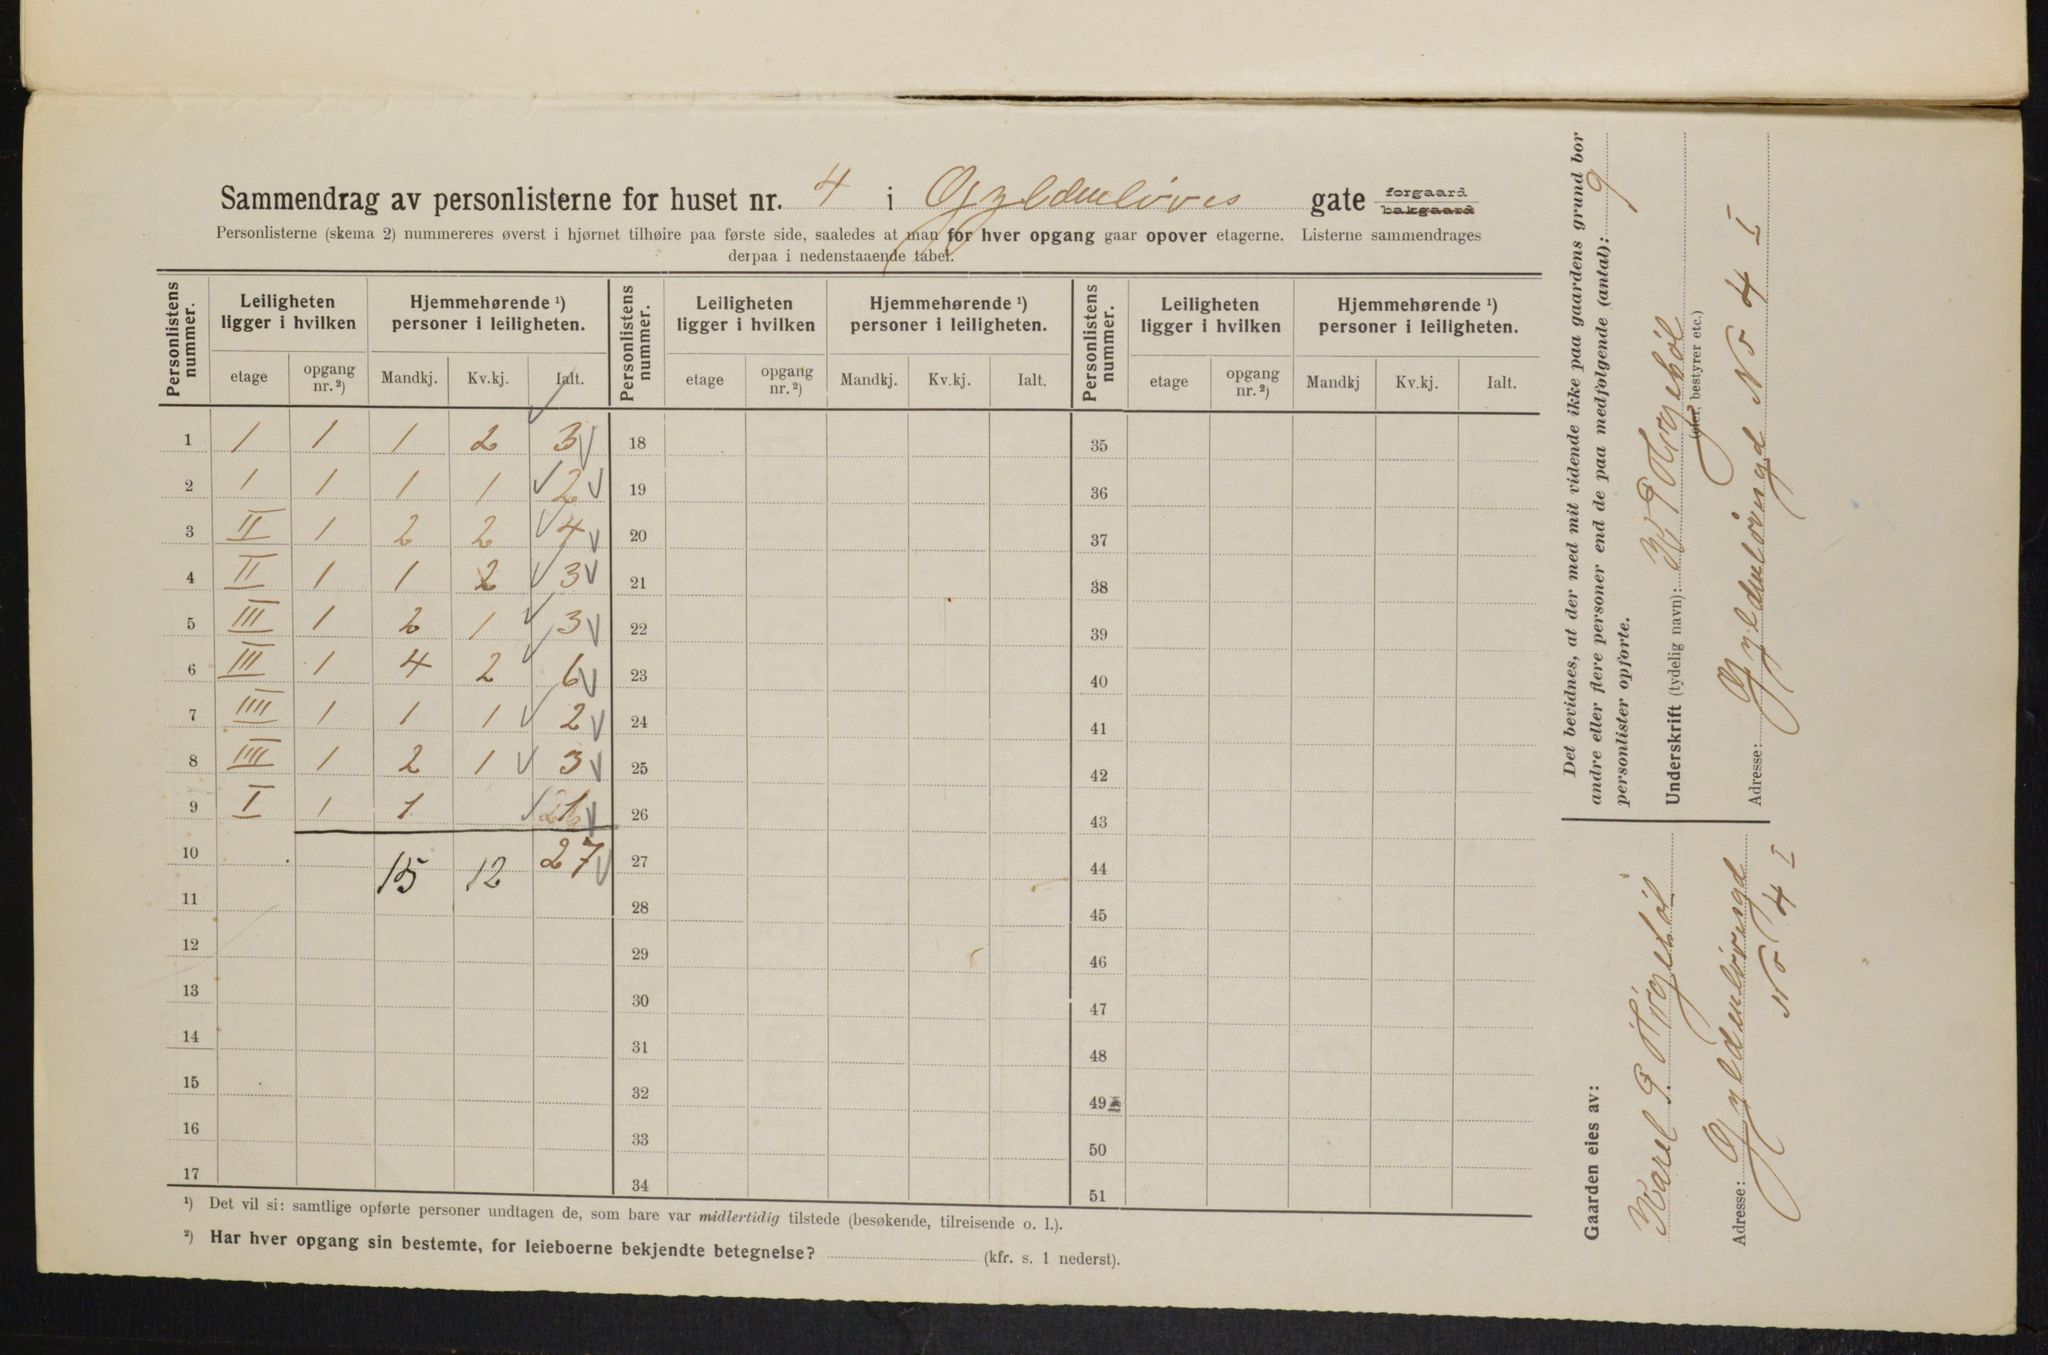 Sammendrag av personlisterne for huset nr. 4 i Gyldenløves gate forgaard bakgaard
Personlisterne (skema 2) nummereres øverst i hjørnet tilhøire paa første side, saaledes at man for hver opgang gaar opover etagerne. Listerne sammendrages
derpaa i nedenstaaende tabel.
Personlistens nummer. Leiligheten ligger i hvilken Hjemmehørende ¹) personer i leiligheten. Personlistens nummer. Leiligheten ligger i hvilken Hjemmehørende ¹) personer i leiligheten. Personlistens nummer. Leiligheten ligger i hvilken Hjemmehørende ¹) personer i leiligheten.
etage opgang nr. ²) Mandkj. Kv.kj. Ialt. etage opgang nr. ²) Mandkj. Kv.kj. Ialt. etage opgang nr. ²) Mandkj Kv.kj. Ialt.
1 1 1 1 2 3 18 35
2 1 1 1 1 2 19 36
3 II 1 2 2 4 20 37
4 II 1 1 2 3 21 38
5 III 1 2 1 3 22 39
6 III 1 4 2 6 23 40
7 IIII 1 1 1 2 24 41
8 IIII 1 2 1 3 25 42
9 I 1 1 1 26 43
10 15 12 27 27 44
11 28 45
12 29 46
13 30 47
14 31 48
15 32 49
16 33 50
17 34 51
¹) Det vil si: samtlige opførte personer undtagen de, som bare var midlertidig tilstede (besøkende, tilreisende o. l.).
²) Har hver opgang sin bestemte, for leieboerne bekjendte betegnelse? (kfr. s. 1 nederst).
Det bevidnes, at der med mit vidende ikke paa gaardens grund bor
andre eller flere personer end de paa medfølgende (antal): 9
personlister opførte.
Underskrift (tydelig navn):
(eier, bestyrer etc.)
Adresse: Gyldenløvesgd No 4 I
Gaarden eies av:
Adresse: Gyldenløvesgd
No 4 I